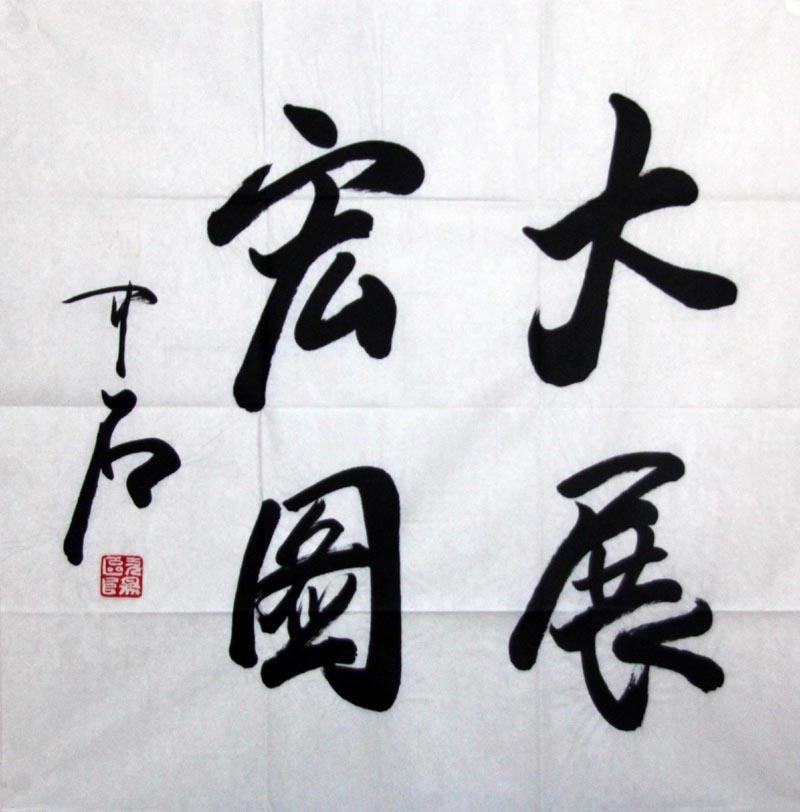 大展
宏圖
中石